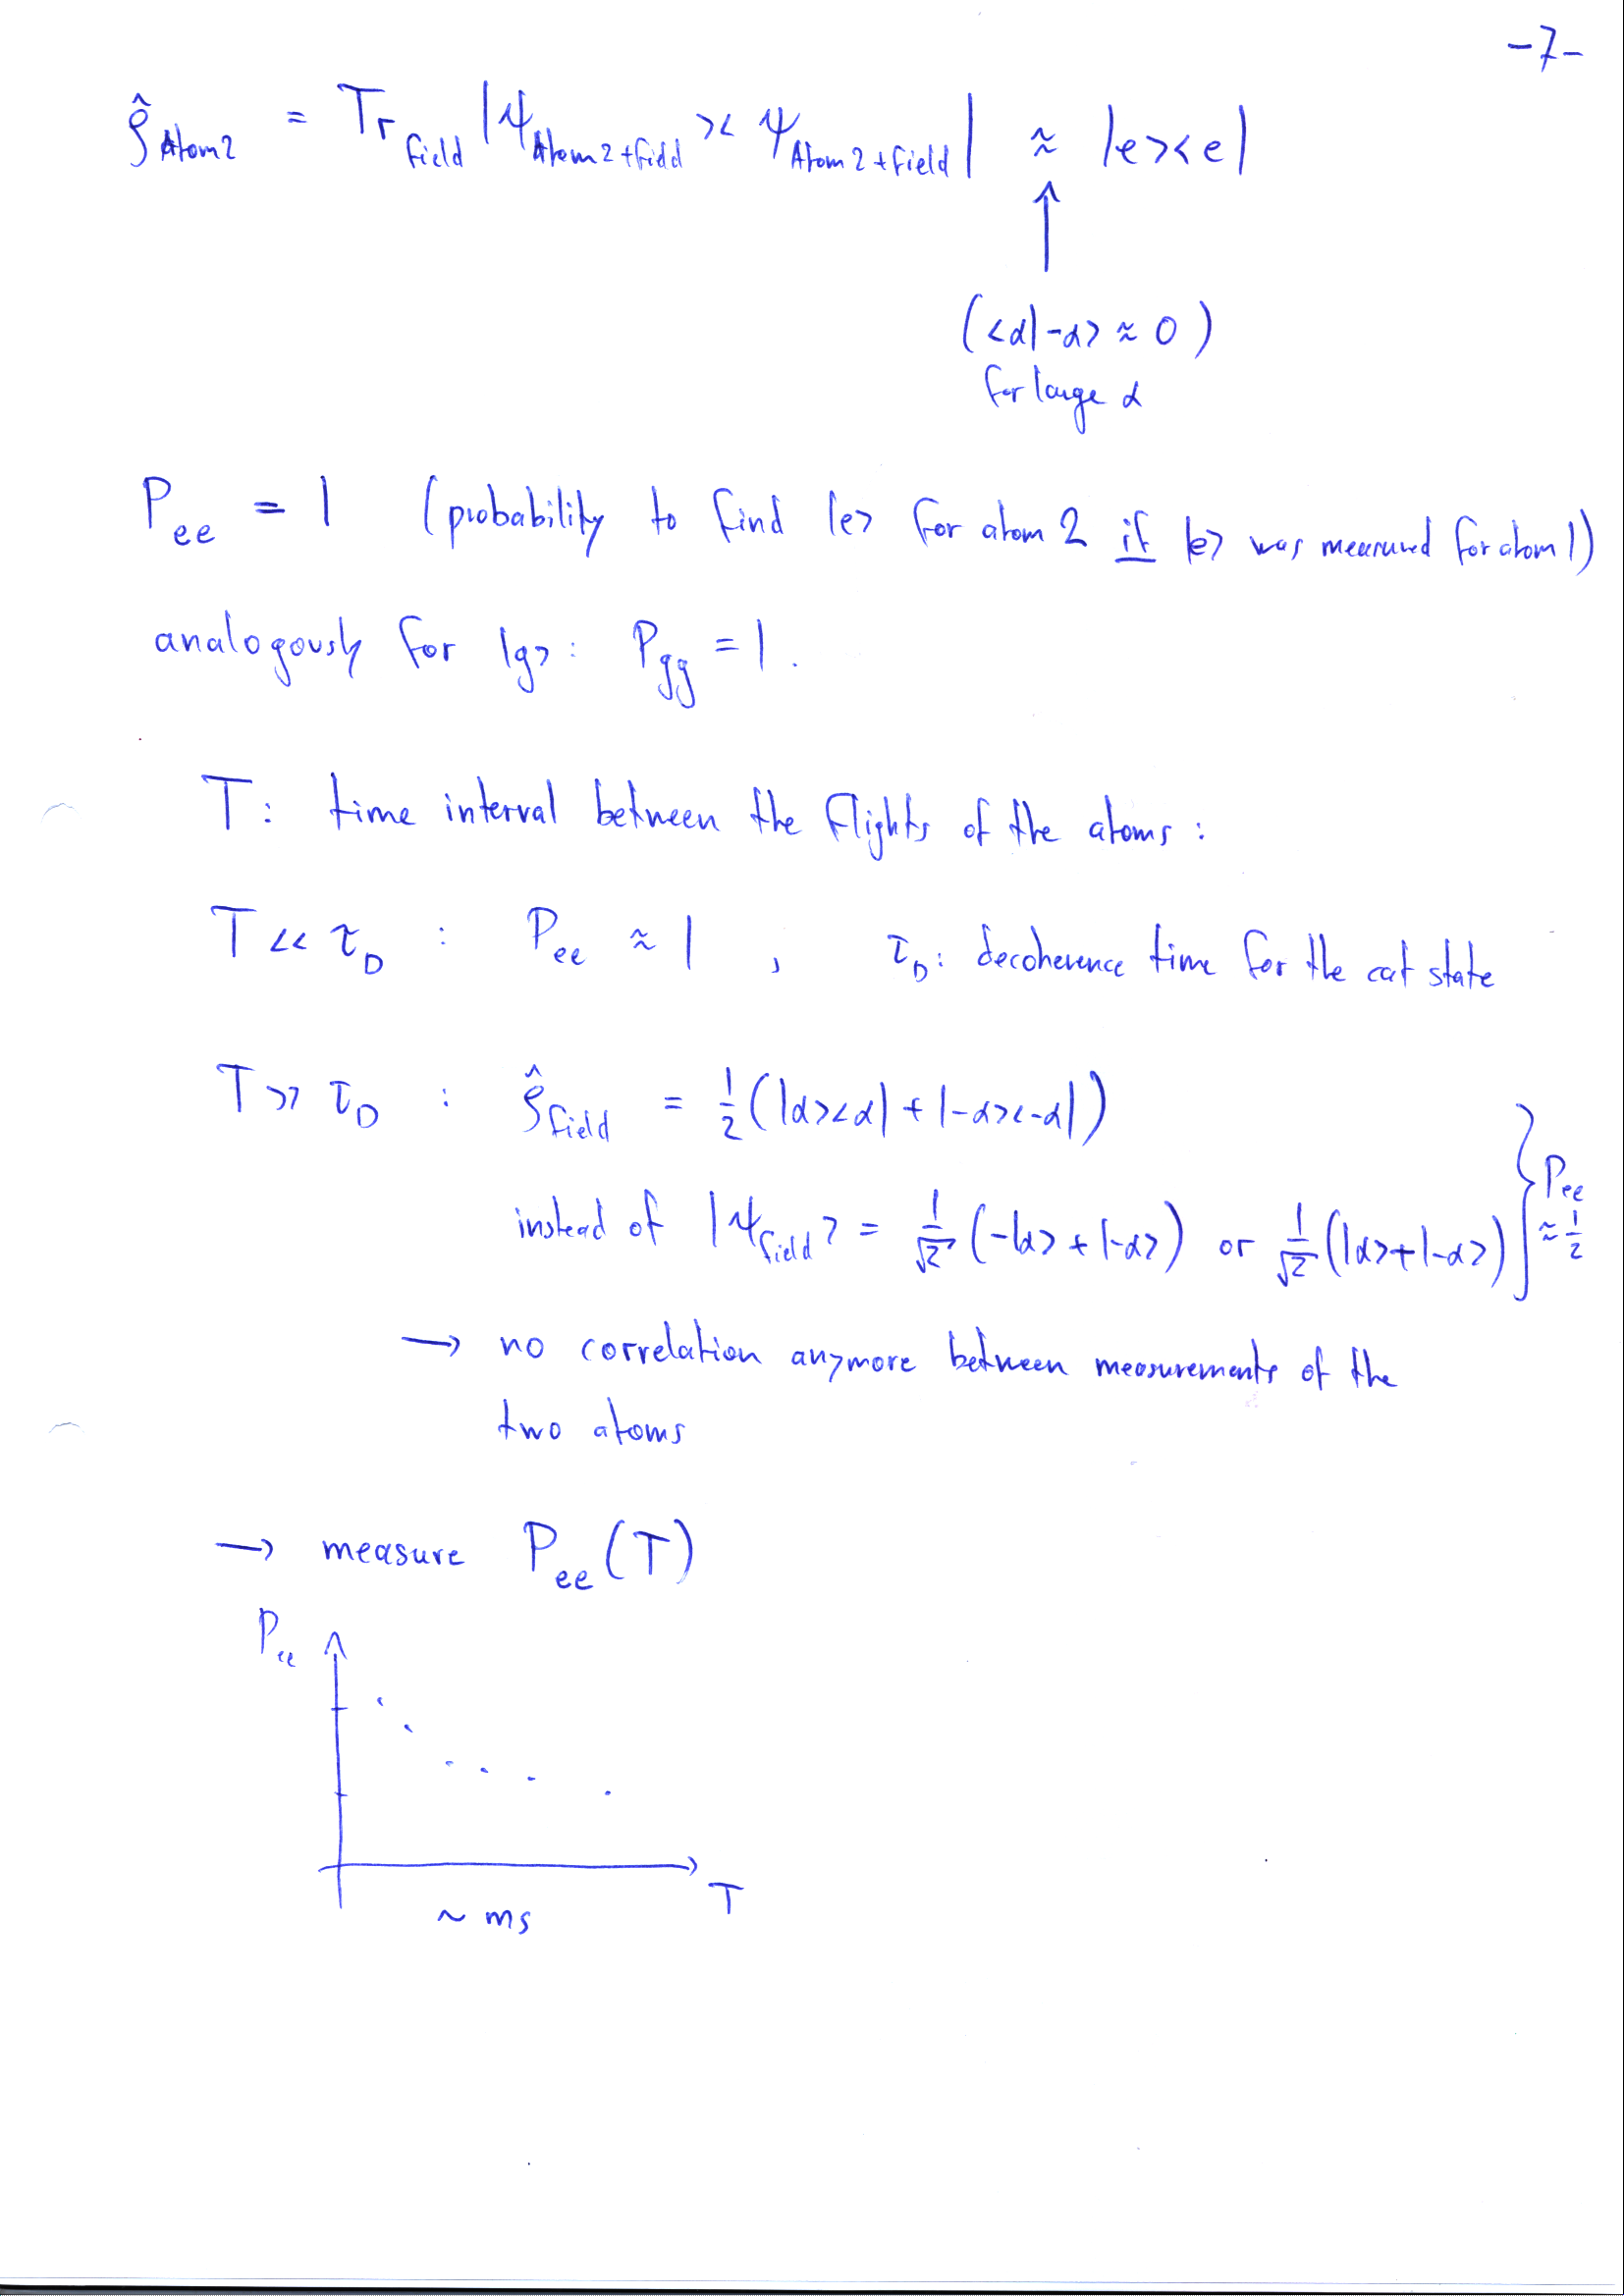 -7-
ρ̂_Atom2 = Tr_field |ψ_Atom2+field >< ψ_Atom2+field| ≈ |e><e|
(<α|-α> ≈ 0)
for large α
P_ee = 1 (probability to find |e> for atom 2 if |e> was measured for atom 1)
analogously for |g>: P_gg = 1.
T: time interval between the flights of the atoms:
T << τ_D : P_ee ≈ 1 , τ_D: decoherence time for the cat state
T >> τ_D : ρ̂_field = 1/2 (|α><α| + |-α><-α|)
instead of |ψ_field> = 1/√2 (-|α> + |-α>) or 1/√2 (|α>+|-α>) } P_ee ≈ 1/2
→ no correlation anymore between measurements of the
two atoms
→ measure P_ee (T)
P_ee
T
~ ms